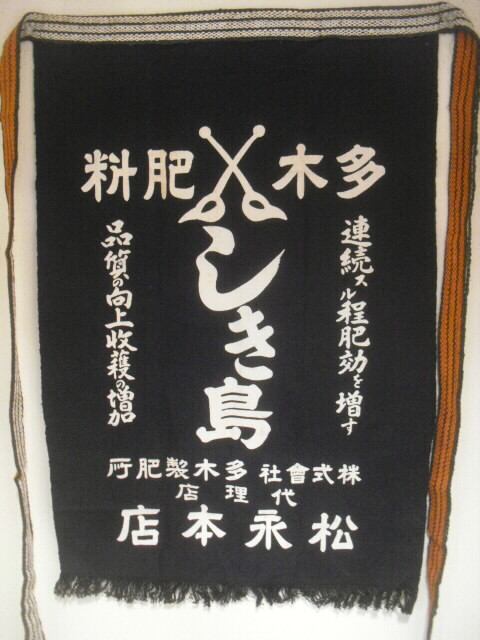 多木肥料
しき島
連続スル程肥効を増す
品質の向上收穫の増加
株式會社多木製肥所
代理店
松永本店